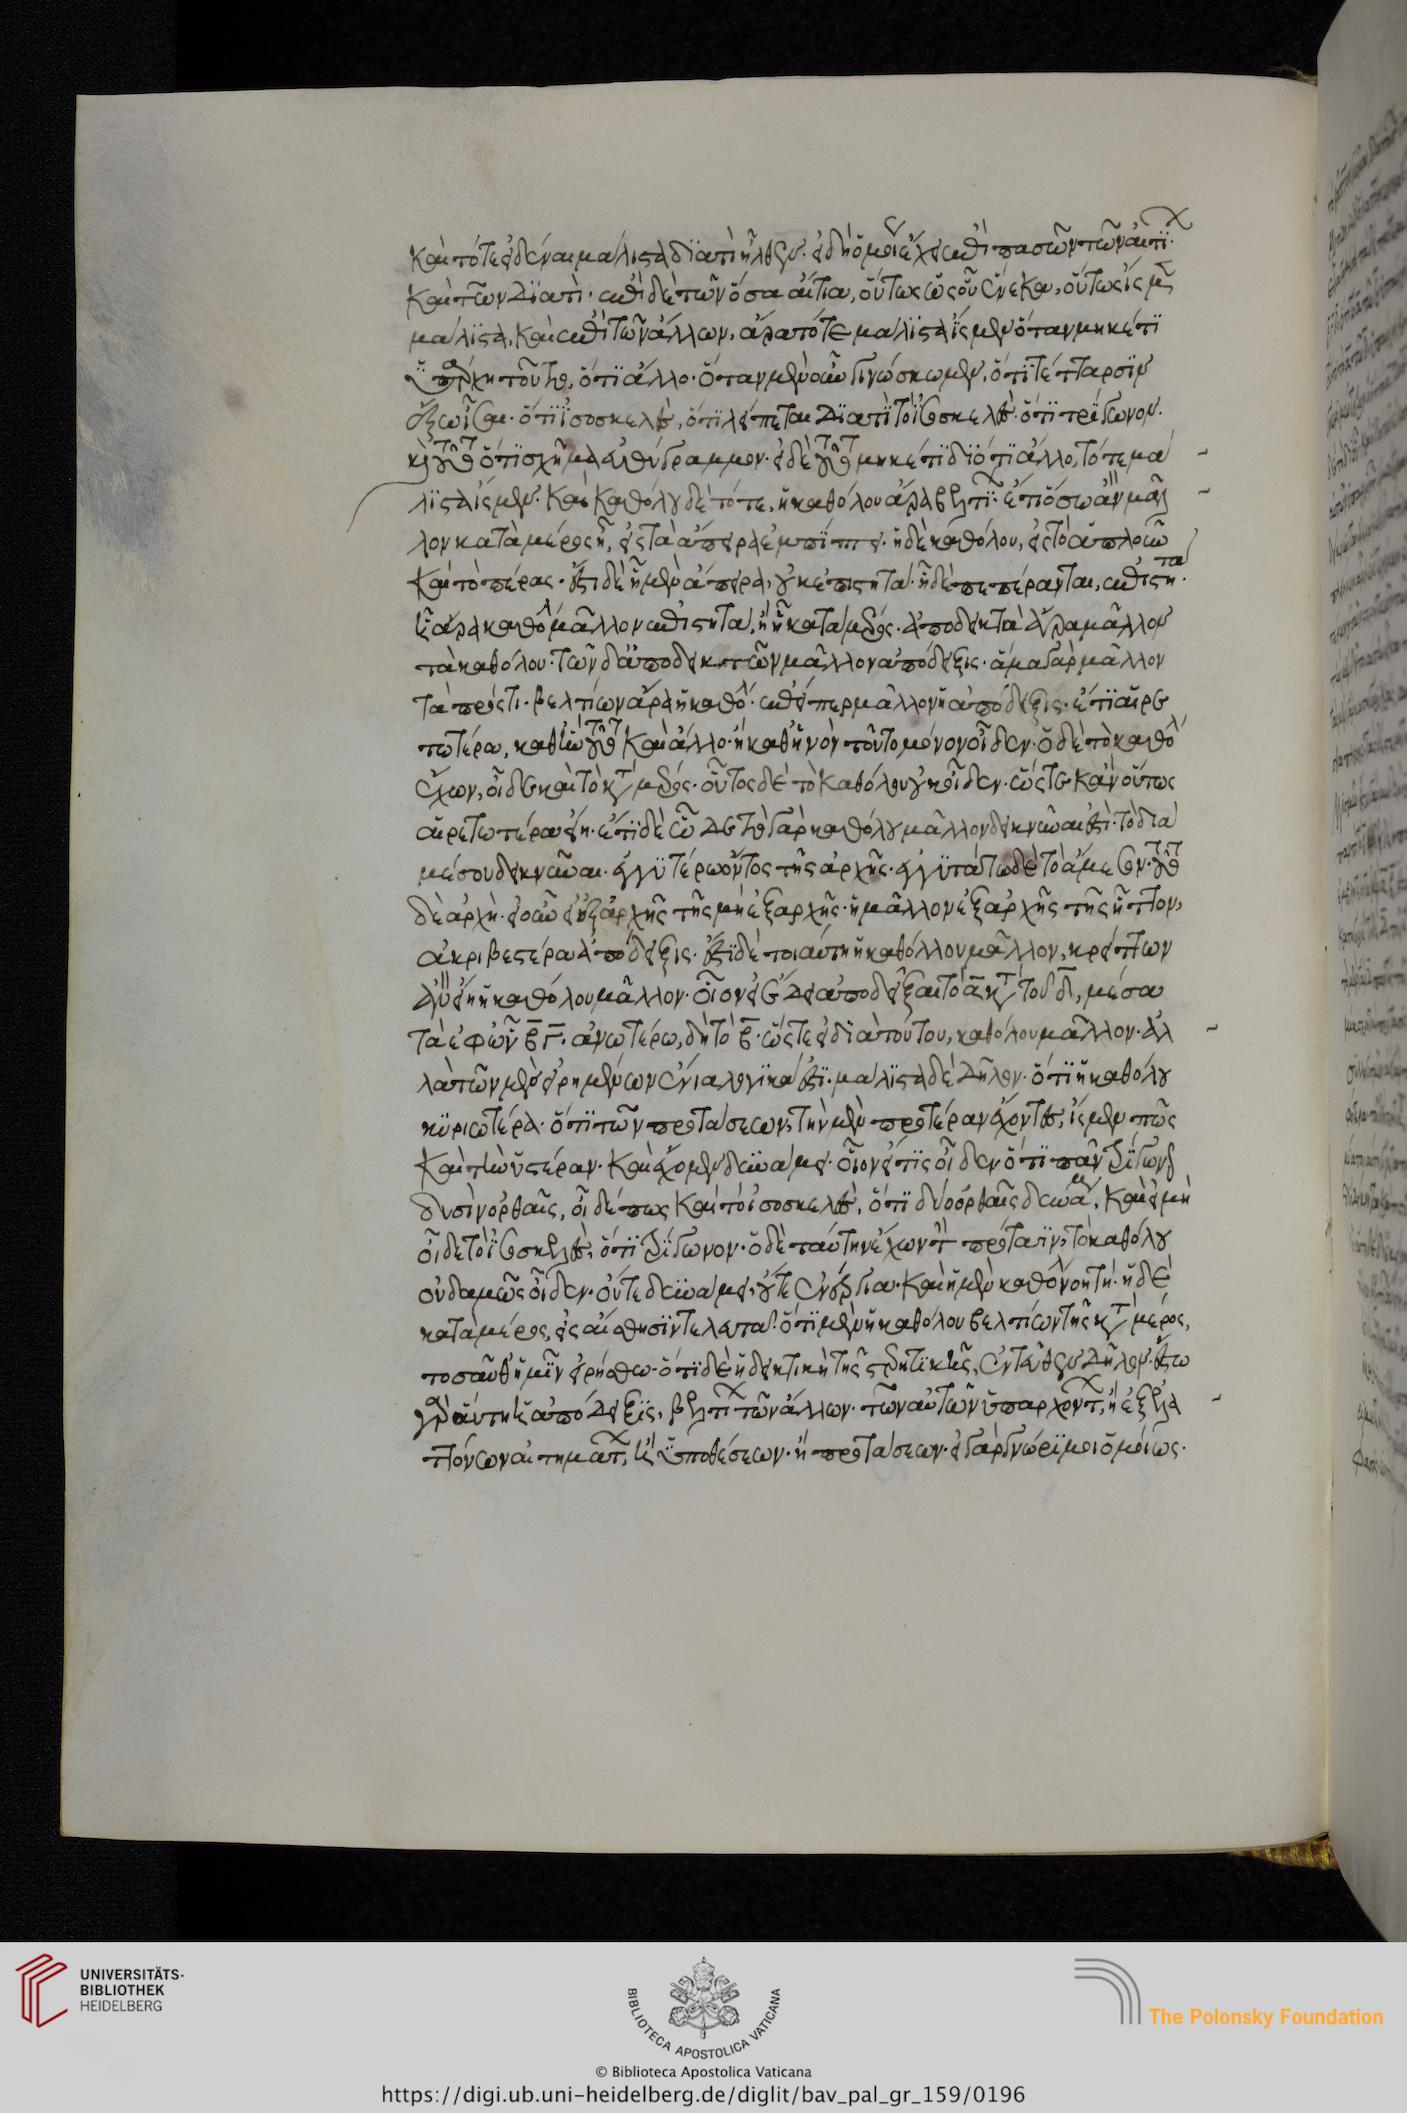 καὶ τότε εἰδέναι μάλιστα διατὶ ἦλθεν. εἰ δὴ ὁμοίως ἔχει ἐπὶ πασῶν τῶν αἰτιῶν.
καὶ τῶν διατὶ. ἐπὶ δὲ τῶν ὅσα αἴτια, οὕτως ὡς οὗ ἕνεκα, οὕτως ἴσμεν
μάλιστα, καὶ ἐπὶ τῶν ἄλλων, ἄρα τότε μάλιστα ἴσμεν ὅταν μηκέτι
ὑπάρχη τοῦτο, ὅτι ἄλλο. ὅταν μὲν οὖν γινώσκωμεν, ὅτι τέτταρσιν
ἔξω ἴσαι. ὅτι ἰσοσκελὲς, ὅτι λείπεται διατὶ τὸ ἰσοσκελὲς. ὅτι τρίγωνον.
καὶ τοῦτο ὅτι σχῆμα εὐθύγραμμον. εἰ δὲ τοῦτο μηκέτι διότι ἄλλο, τότε μά
λιστα ἴσμεν. καὶ καθόλου δὲ τότε, ἡ καθόλου ἄρα βελτίων. ἔτι ὅσω ἂν μᾶλ
λον κατὰ μέρος ἦ, εἰς τὰ ἄπειρα ἐμπίπτει. ἡ δὲ καθόλου, εἰς τὸ ἁπλοῦν
καὶ τὸ πέρας. ἔστι δὲ ἧ μὲν ἄπειρα, οὐκ ἐπιστητά. ἧ δὲ πεπέρανται, ἐπιστητά.
ἧ ἄρα καθόλου μᾶλλον ἐπιστητὰ, ἢ ἧ κατὰ μέρος. ἀποδεικτὰ ἄρα μᾶλλον
τὰ καθόλου. τῶν δ' ἀποδεικτῶν μᾶλλον ἀπόδειξις. ἅμα γὰρ μᾶλλον
τὰ πρός τι. βελτίων ἄρα ἡ καθόλου. ἐπείπερ μᾶλλον ἡ ἀπόδειξις. ἔτι αἱρε
τωτέρα, καθ' ἣν τοῦτο καὶ ἄλλο. ἢ καθ' ἣν ὸν τοῦτο μόνον οἶδεν. ὁ δὲ τὸ καθόλου
ἔχων, οἶδε καὶ τὸ κατὰ μέρος. οὗτος δὲ τὸ καθόλου οὐκ οἶδεν. ὥστε κἂν οὕτως
αἱρετωτέρα εἴη. ἔτι δὲ ὧδε τὸ γὰρ καθόλου μᾶλλον δεικνύναι ἐστὶ. τὸ διὰ
μέσου δεικνύναι. ἐγγυτέρω ὄντος τῆς ἀρχῆς. ἐγγυτάτω δὲ τὸ ἄμεσον. τοῦτο
δὲ ἀρχὴ. εἰ οὖν ἡ ἐξ ἀρχῆς τῆς μὴ ἐξ ἀρχῆς. ἡ μᾶλλον ἐξ ἀρχῆς τῆς ἧττον,
ἀκριβεστέρα ἀπόδειξις. ἔστι δὲ τοιαύτη ἡ καθόλου μᾶλλον, κρείττων
ἂν εἴη ἡ καθόλου μᾶλλον. οἷον εἰ ἔδει ἀποδεῖξαι τὸ α̅ κατὰ τοῦ δ̅, μέσα
τὰ ἐφ' ὧν β̅ γ̅. ἀνωτέρω, δὴ τὸ β̅. ὥστε ἡ διὰ τούτου, καθόλου μᾶλλον. ἀλ
λὰ τῶν μὲν εἰρημένων ἔνια λογικά ἐστι. μάλιστα δὲ δῆλον. ὅτι ἡ καθόλου
κυριωτέρα. ὅτι τῶν προτάσεων, τὴν μὲν προτέραν ἔχοντες, ἴσμεν πῶς
καὶ τὴν ὑστέραν. καὶ ἔχομεν δυνάμει. οἷον εἴ τις οἶδεν ὅτι πᾶν τρίγωνον
δυσὶν ὀρθαῖς, οἶδέ πως καὶ τὸ ἰσοσκελὲς, ὅτι δύο ὀρθαῖς δυνάμει, καὶ εἰ μὴ
οἶδε τὸ ἰσοσκελὲς, ὅτι τρίγωνον. ὁ δὲ ταύτην ἔχων τὴν πρότασιν, τὸ καθόλου
οὐδαμῶς οἶδεν. οὔτε δυνάμει, οὔτε ἐνεργεία. καὶ ἡ μὲν καθόλου νοητή. ἡ δὲ
κατὰ μέρος, εἰς αἴσθησιν τελευτᾶ. ὅτι μὲν ἡ καθόλου βελτίων τῆς κατὰ μέρος,
τοσαῦθ' ἡμῖν εἰρήσθω. ὅτι δὲ ἡ δεικτικὴ τῆς στερητικῆς, ἐντεῦθεν δῆλον. ἔστω
γὰρ αὕτη ἡ ἀπόδειξις, βελτίων τῶν ἄλλων. τῶν αὐτῶν ὑπαρχόντων, ἡ ἐξ ἐλα
ττόνων αἰτημάτων, ἢ ὑποθέσεων. ἢ προτάσεων. εἰ γὰρ γνώριμοι ὁμοίως.
UNIVERSITÄTS-
BIBLIOTHEK
HEIDELBERG
BIBLIOTECA APOSTOLICA VATICANA
The Polonsky Foundation
© Biblioteca Apostolica Vaticana
https://digi.ub.uni-heidelberg.de/diglit/bav_pal_gr_159/0196